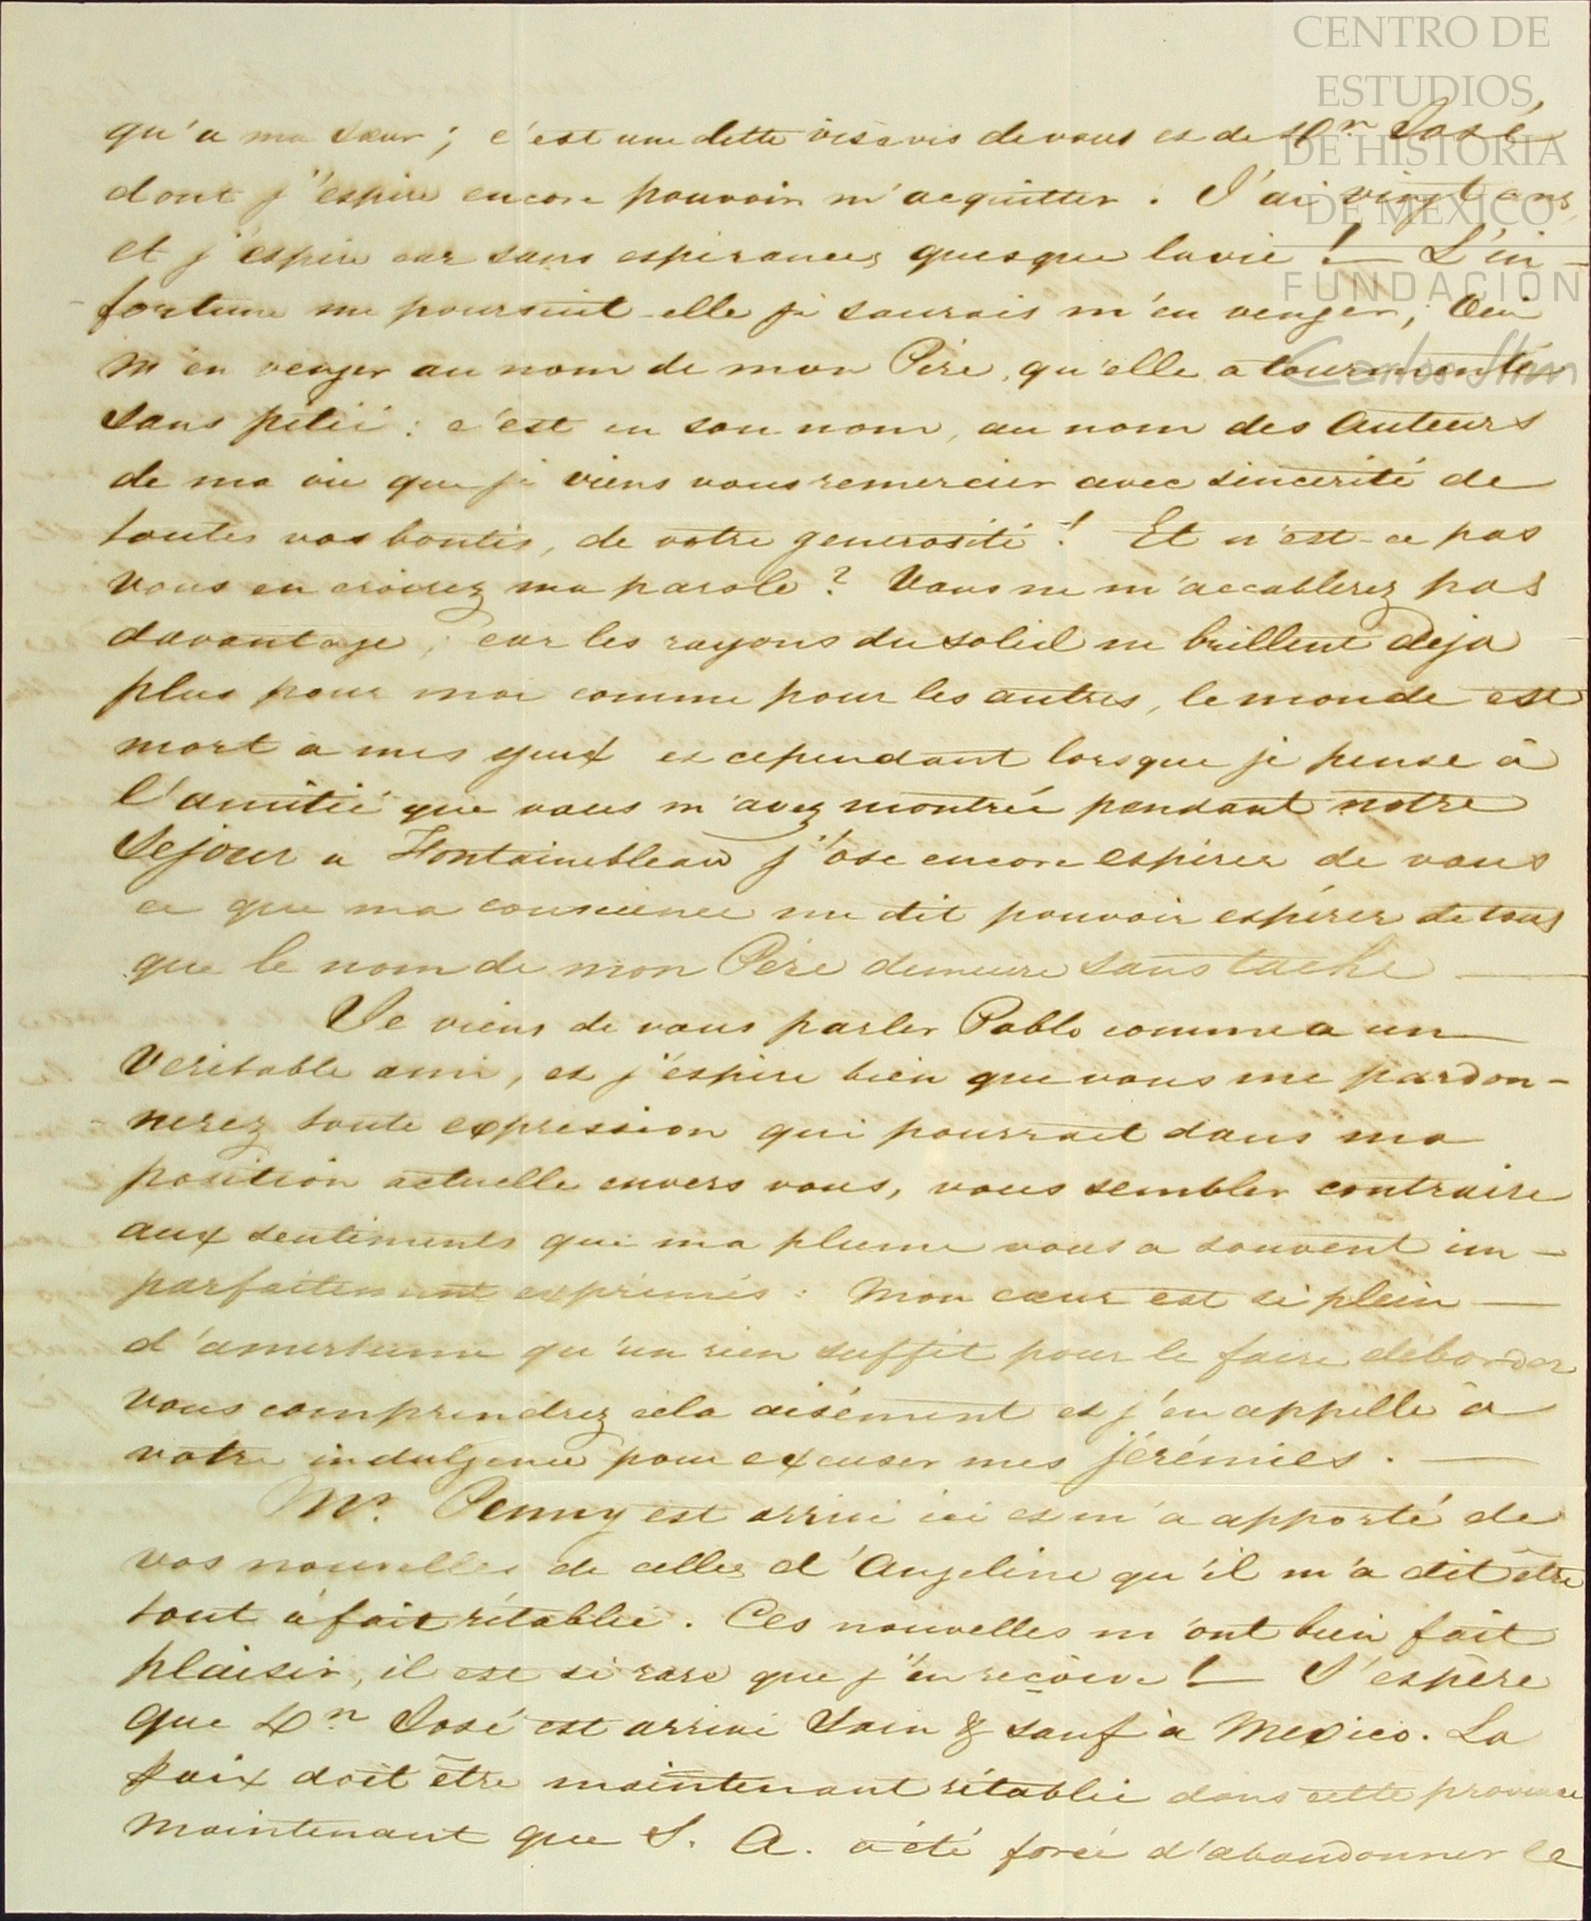 CENTRO DE
ESTUDIOS
DE HISTORIA
DE MEXICO
FUNDACIÓN
Carlos Slim
qu'a ma sœur ; c'est une dette visavis de vous et de Dn José
dont j'espère encore pouvoir m'acquitter . J'ai vingt ans
et j'espère car sans espérances quesque la vie ! — L'in-
-fortune me poursuit-elle je saurais m'en venger, Oui
m'en venger au nom de mon Père, qu'elle a tourmenté
sans pitié : c'est en son nom, au nom des Auteurs
de ma vie que je viens vous remercier avec sincerité de
toutes vos bontés, de votre generosité ! Et n'est-ce pas
vous en croirez ma parole ? Vous ne m'accablerez pas
davantage, car les rayons du soleil ne brillent deja
plus pour moi comme pour les autres, le monde est
mort a mes yeux et cependant lorsque je pense à
l'amitié que vous m'avez montrée pendant notre
Sejour a Fontainebleau j'ose encore espérer de vous
ce que ma conscience me dit pouvoir espérer de tous
que le nom de mon Père demeure sans tache —
Je viens de vous parler Pablo comme a un
veritable ami, et j'espère bien que vous me pardon-
-nerez toute expression qui pourrait dans ma
position actuelle envers vous, vous sembler contraire
aux sentiments que ma plume vous a souvent im-
parfaitement exprimés : Mon cœur est si plein —
d'amertume qu'un rien suffit pour le faire déborder
vous comprendrez cela aisément et j'en appelle à
votre indulgence pour excuser mes jérémies . —
Mr. Penny est arrivé ici et m'a apporté de
vos nouvelles de celles d'Angeline qu'il m'a dit être
tout à fait rétablie . Ces nouvelles m'ont bien fait
plaisir, il est si rare que j'en reçoive ! — J'espère
que Dn José est arrivé Sain & sauf à Mexico. La
paix doit être maintenant rétablie dans cette province
maintenant que S. A. a été forcé d'abandonner le